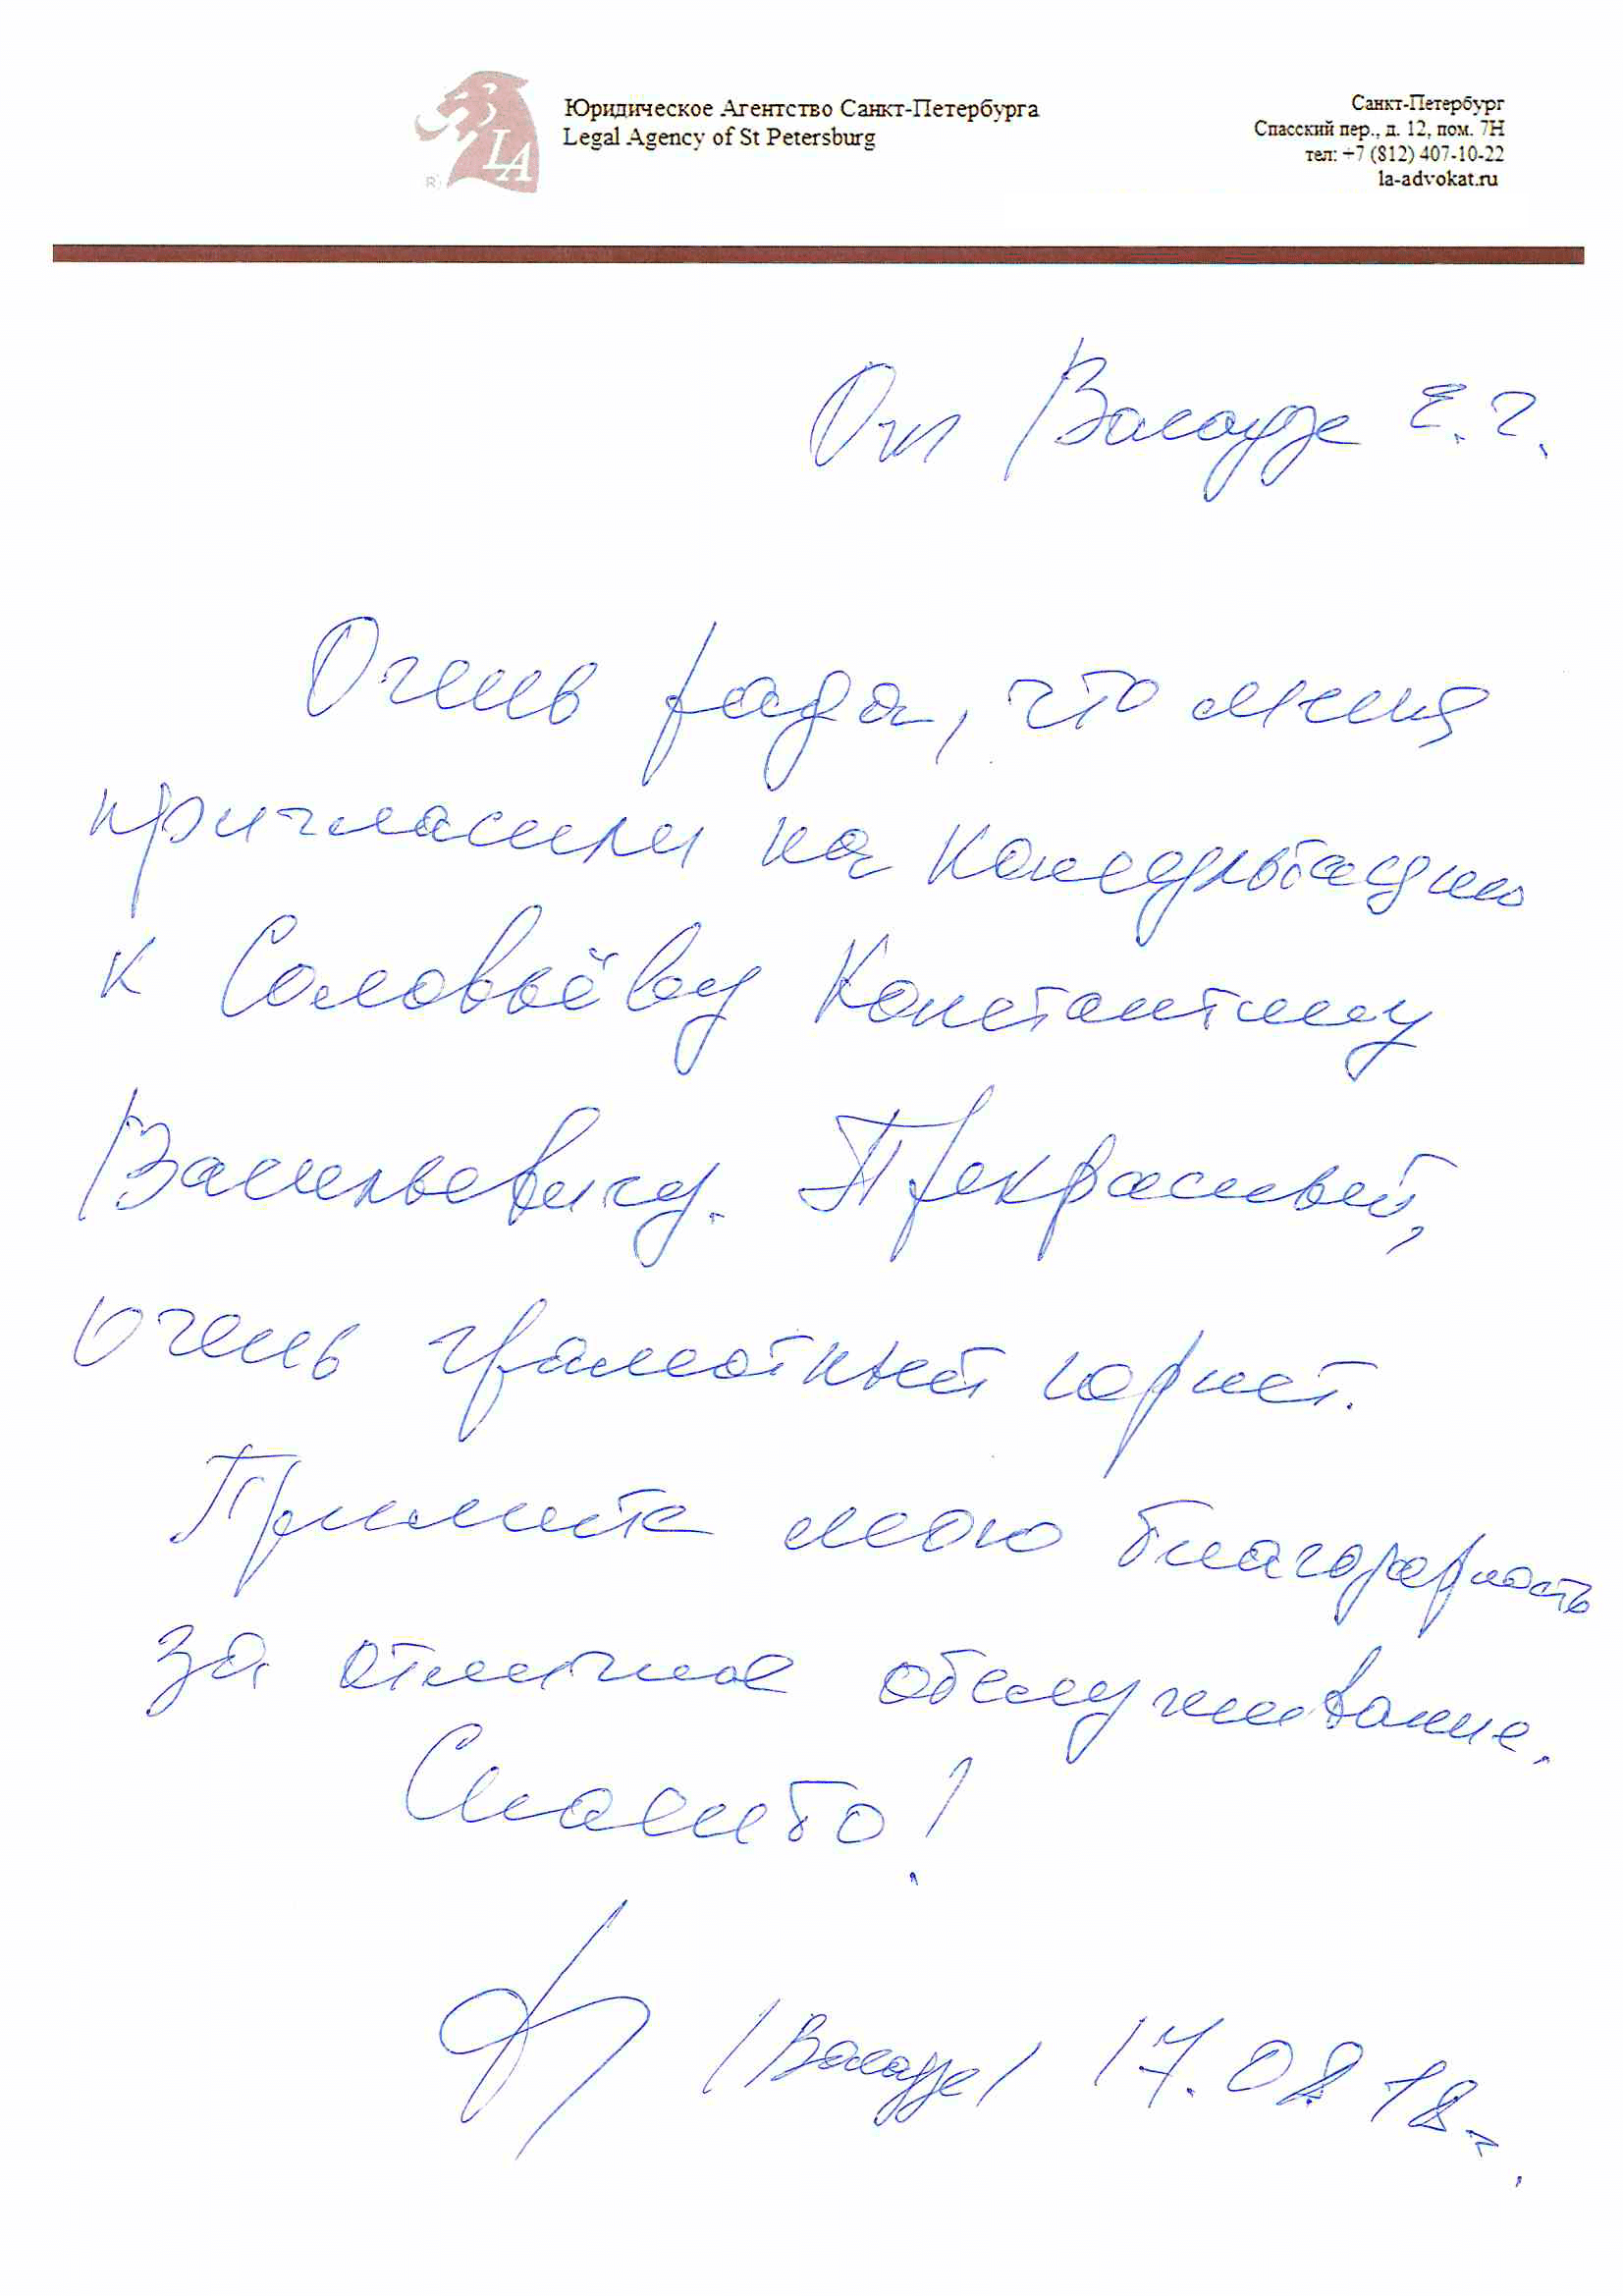 Юридическое Агентство Санкт-Петербурга
Legal Agency of St Petersburg
LA
R
Санкт-Петербург
Спасский пер., д. 12, пом. 7Н
тел: +7 (812) 407-10-22
la-advokat.ru
От Васадзе Е. Г.
Очень рада, что меня
пригласили на консультацию
к Соловьёву Константину
Васильевичу. Прекрасный,
очень грамотный юрист.
Примите мою благодарность
за отличное обслуживание.
Спасибо!
/Васадзе/ 17.08 18 г.